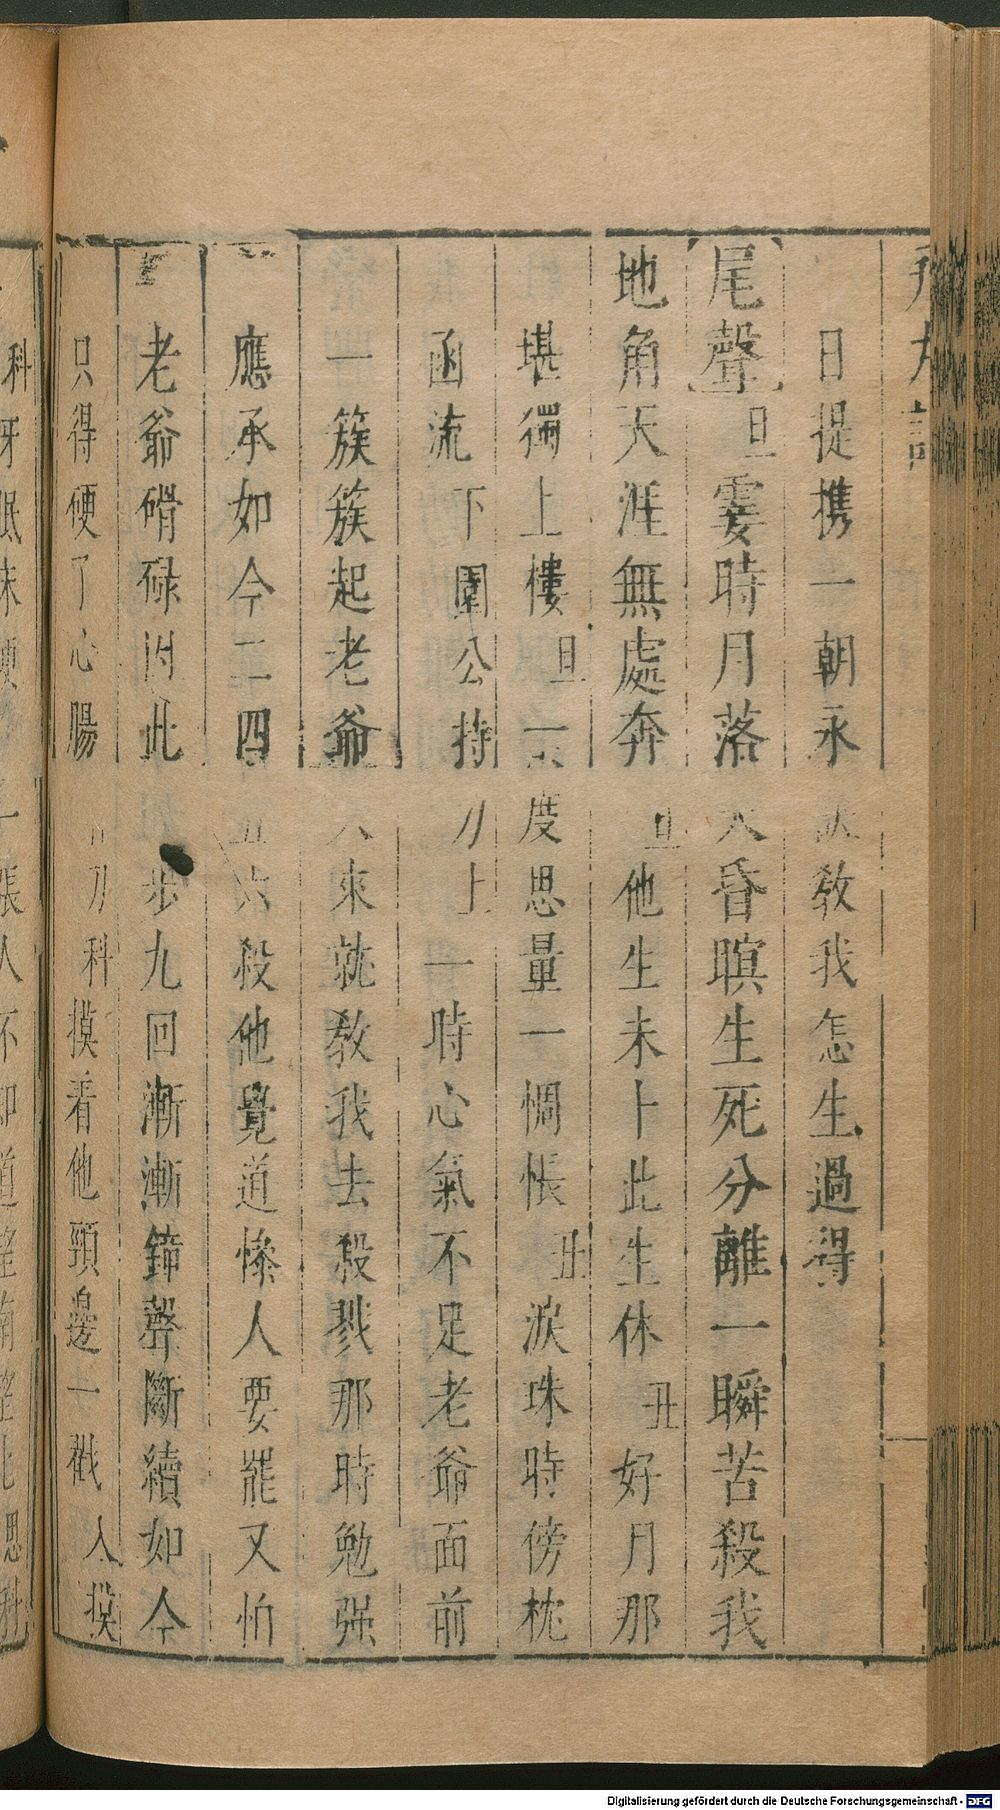 日提携一朝永訣教我怎生過得
尾聲旦霎時月落天昏暝生死分離一瞬苦殺我
地角天涯無處奔旦他生未卜此生休丑好月那
堪獨上樓旦一度思量一惆悵丑淚珠時傍枕
函流下園公持刀上一時心氣不足老爺面前
一簇簇起老爺 來就教我去殺戮那時勉强
應承如今二四五六殺他覺道慘人要罷又怕
老爺碌因此步九回漸漸聲斷續如今
只得硬了心腸 刀科摸看他頸邊一戳 人摸
Digitalisierung gefördert durch die Deutsche Forschungsgemeinschaft - DFG